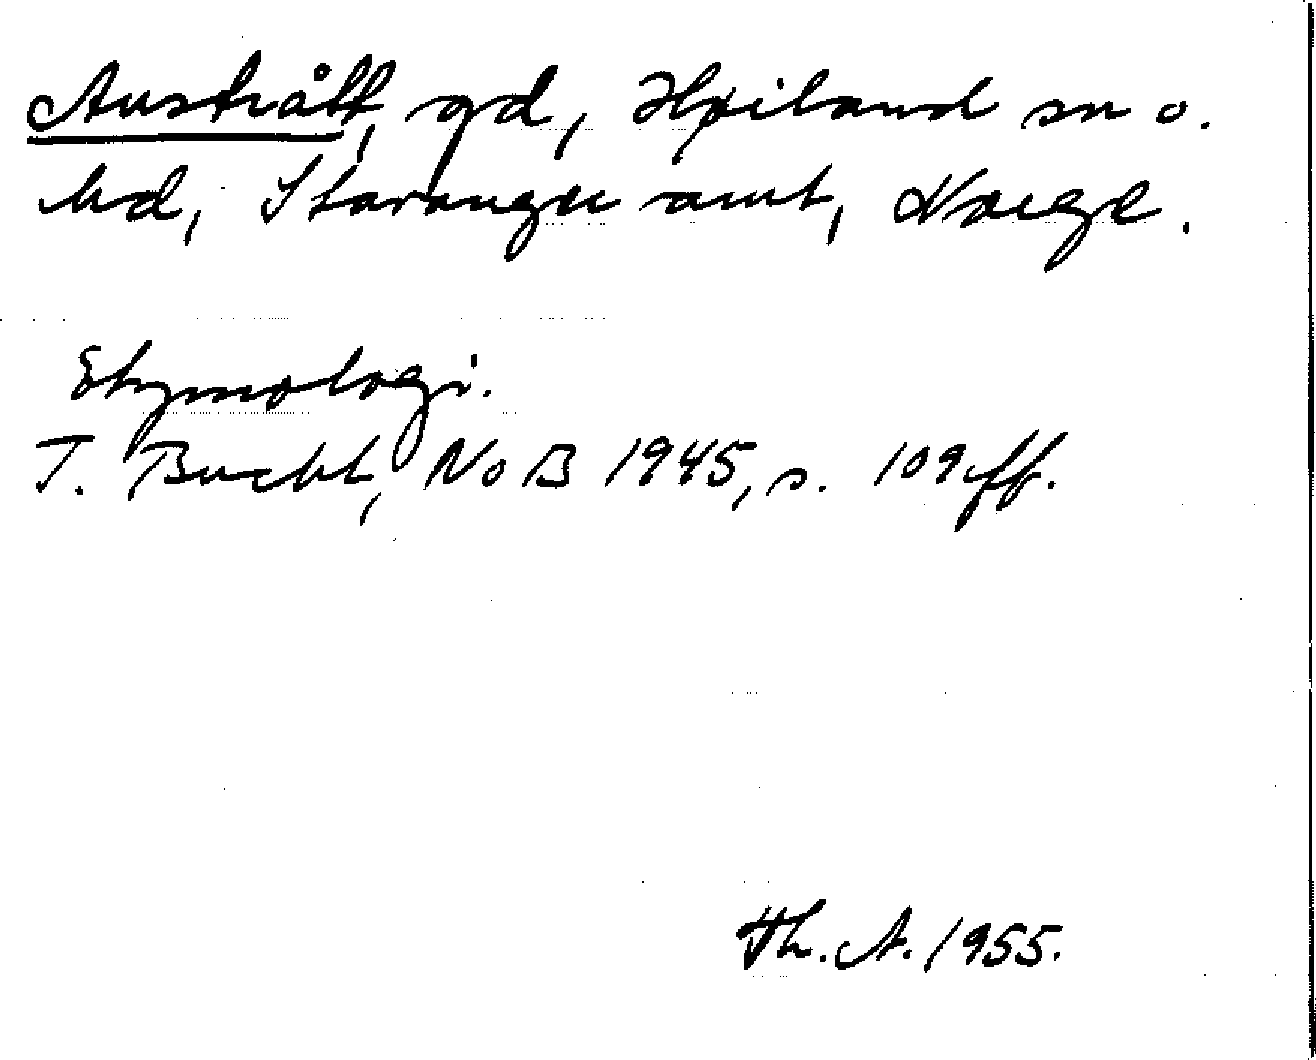 Austrått, gd, Høiland sn o.
hd, Stavanger amt, Norge.
Etymologi.
T. Bucht, NoB 1945, s. 109 ff.
Th. A. 1955.